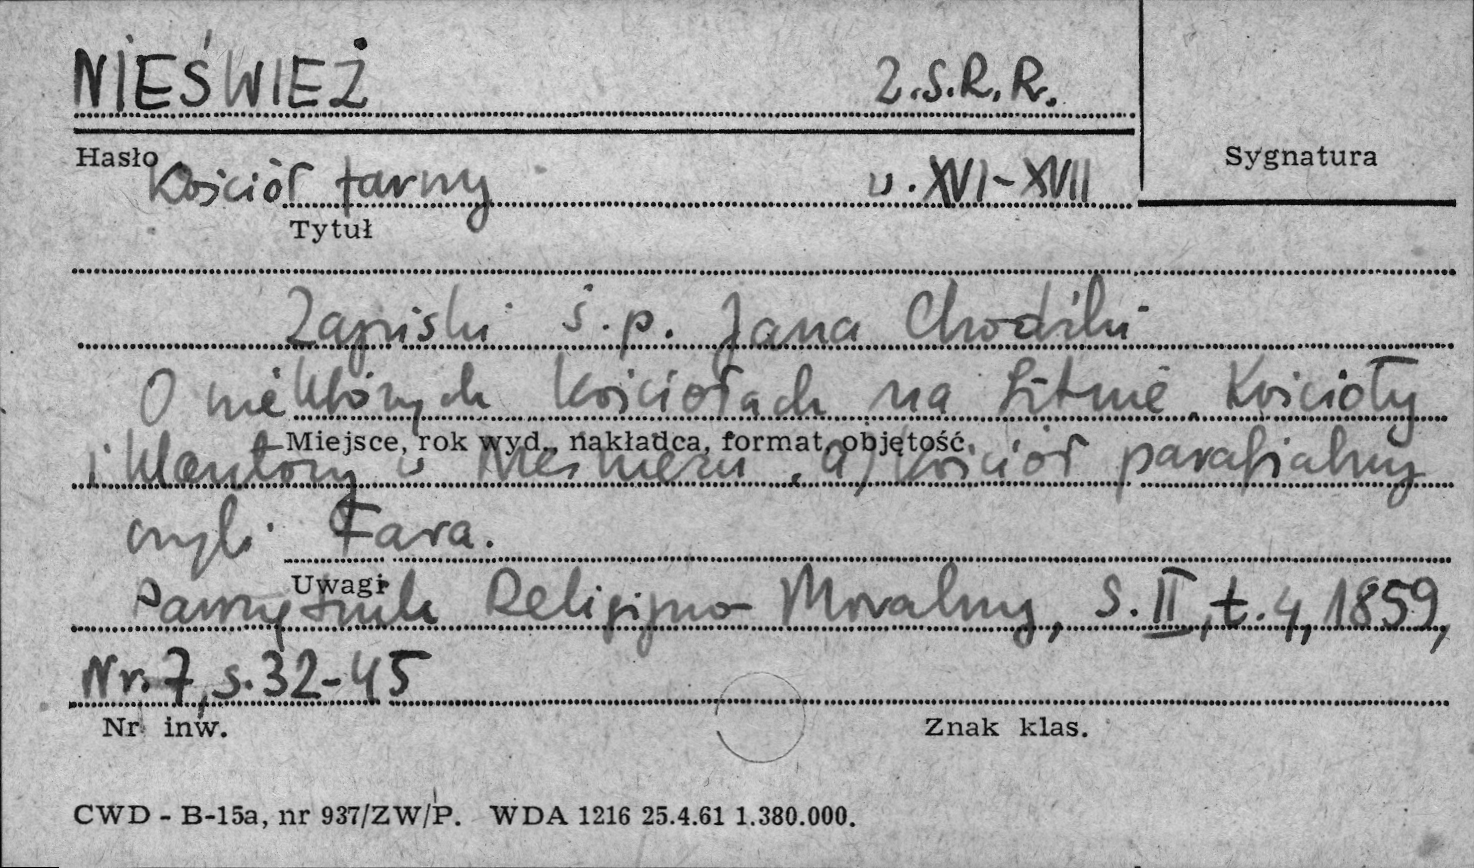 NIEŚWIEŻ Z.S.R.R.
Hasło
Sygnatura
Kościół farny w. XVI-XVII
Tytuł
Zapiski ś.p. Jana Chodźki
O niektórych kościołach na Litwie. Kościoły
Miejsce, rok wyd., nakładca, format, objętość
i klasztory w Nieświeżu. a) kościół parafialny
czyli Fara.
Uwagi
Pamiętnik Religijno-Moralny, S.II, t.4, 1859,
Nr.7, s.32-45
Nr inw. Znak klas.
CWD - B-15a, nr 937/ZW/P. WDA 1216 25.4.61 1.380.000.